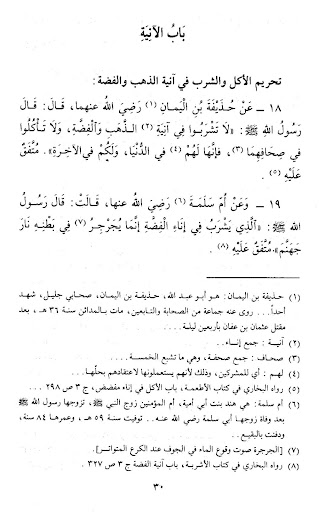 بَابُ الآنِيَةِ
تحريم الأكل والشرب في آنية الذهب والفضة :
١٨ ــ عَنْ حُذَيْفَةَ بْنِ الْيَمَانِ (١) رَضِيَ اللَّهُ عنهما، قَالَ: قَالَ
رَسُولُ اللَّهِ ﷺ: «لَا تَشْرَبُوا فِي آنِيَةِ (٢) الذَّهَبِ وَالْفِضَّةِ، وَلَا تَأْكُلُوا
فِي صِحَافِهِمَا (٣)، فَإِنَّهَا لَهُمْ (٤) فِي الدُّنْيَا، وَلَكُمْ فِي الآخِرَةِ». مُتَّفَقٌ
عَلَيْهِ (٥) .
١٩ ــ وَعَنْ أُمِّ سَلَمَةَ (٦) رَضِيَ اللَّهُ عنها، قَالَتْ: قَالَ رَسُولُ
اللَّهِ ﷺ: «الَّذِي يَشْرَبُ فِي إِنَاءِ الْفِضَّةِ إِنَّمَا يُجَرْجِرُ (٧) فِي بَطْنِهِ نَارَ
جَهَنَّمَ». مُتَّفَقٌ عَلَيْهِ (٨) .
(١) حذيفة بن اليمان: هو أبو عبد الله، حذيفة بن اليمان، صحابي جليل، شهد
أحداً... روى عنه جماعة من الصحابة والتابعين، مات بالمدائن سنة ٣٦ هـ، بعد
مقتل عثمان بن عفان بأربعين ليلة...
(٢) آنية : جمع إناء..
(٣) صحاف : جمع صحفة، وهي ما تشبع الخمسة....
(٤) لهم : أي للمشركين، وذلك لأنهم يستعملونها لاعتقادهم بحلّها...
(٥) رواه البخاري في كتاب الأطعمة، باب الأكل في إناء مفضض، ج ٣ ص ٢٩٨ .
(٦) أم سلمة: هي هند بنت أبي أمية، أم المؤمنين زوج النبي ﷺ، تزوجها رسول الله ﷺ
بعد وفاة زوجها أبي سلمة رضي الله عنه.. توفيت سنة ٥٩ هـ، وعمرها ٨٤ سنة،
ودفنت بالبقيع..
(٧) [الجرجرة صوت وقوع الماء في الجوف عند الكرع المتواتر].
(٨) رواه البخاري في كتاب الأشربة، باب آنية الفضة ج ٣ ص ٣٢٧ .
٣٠